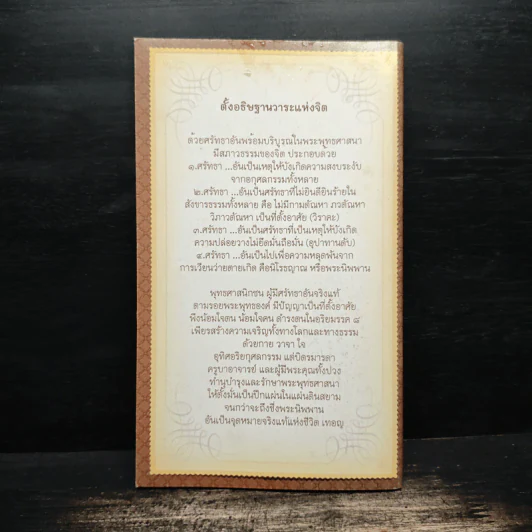 ตั้งอธิษฐานวาระแห่งจิต
ด้วยศรัทธาอันพร้อมบริบูรณ์ในพระพุทธศาสนา
มีสภาวธรรมของจิต ประกอบด้วย
๑.ศรัทธา ...อันเป็นเหตุให้บังเกิดความสงบระงับ
จากอกุศลกรรมทั้งหลาย
๒.ศรัทธา ...อันเป็นศรัทธาที่ไม่ยินดียินร้ายใน
สังขารธรรมทั้งหลาย คือ ไม่มีกามตัณหา ภวตัณหา
วิภวตัณหา เป็นที่ตั้งอาศัย (วิราคะ)
๓.ศรัทธา ...อันเป็นศรัทธาที่เป็นเหตุให้บังเกิด
ความปล่อยวางไม่ยึดมั่นถือมั่น (อุปาทานดับ)
๔.ศรัทธา ...อันเป็นไปเพื่อความหลุดพ้นจาก
การเวียนว่ายตายเกิด คือนิโรธญาณ หรือพระนิพพาน
พุทธศาสนิกชน ผู้มีศรัทธาอันจริงแท้
ตามรอยพระพุทธองค์ มีปัญญาเป็นที่ตั้งอาศัย
พึงน้อมใจตน น้อมใจคน ดำรงตนในอริยมรรค ๘
เพียรสร้างความเจริญทั้งทางโลกและทางธรรม
ด้วยกาย วาจา ใจ
อุทิศอริยกุศลกรรม แด่บิดรมารดา
ครูบาอาจารย์ และผู้มีพระคุณทั้งปวง
ทำนุบำรุงและรักษาพระพุทธศาสนา
ให้ตั้งมั่นเป็นปึกแผ่นในแผ่นดินสยาม
จนกว่าจะถึงซึ่งพระนิพพาน
อันเป็นจุดหมายจริงแท้แห่งชีวิต เทอญ